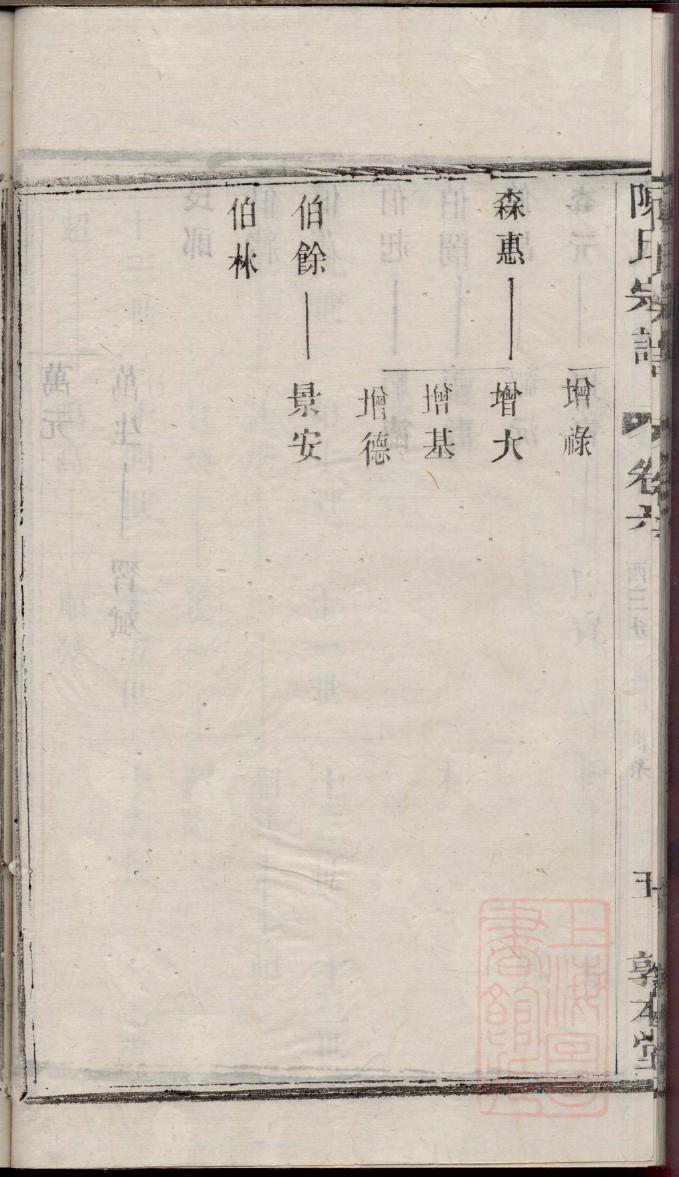 陳氏宗譜 卷六
敦本堂
增祿
森惠 增大
增基
增德
伯餘 景安
伯林
上海圖書館藏